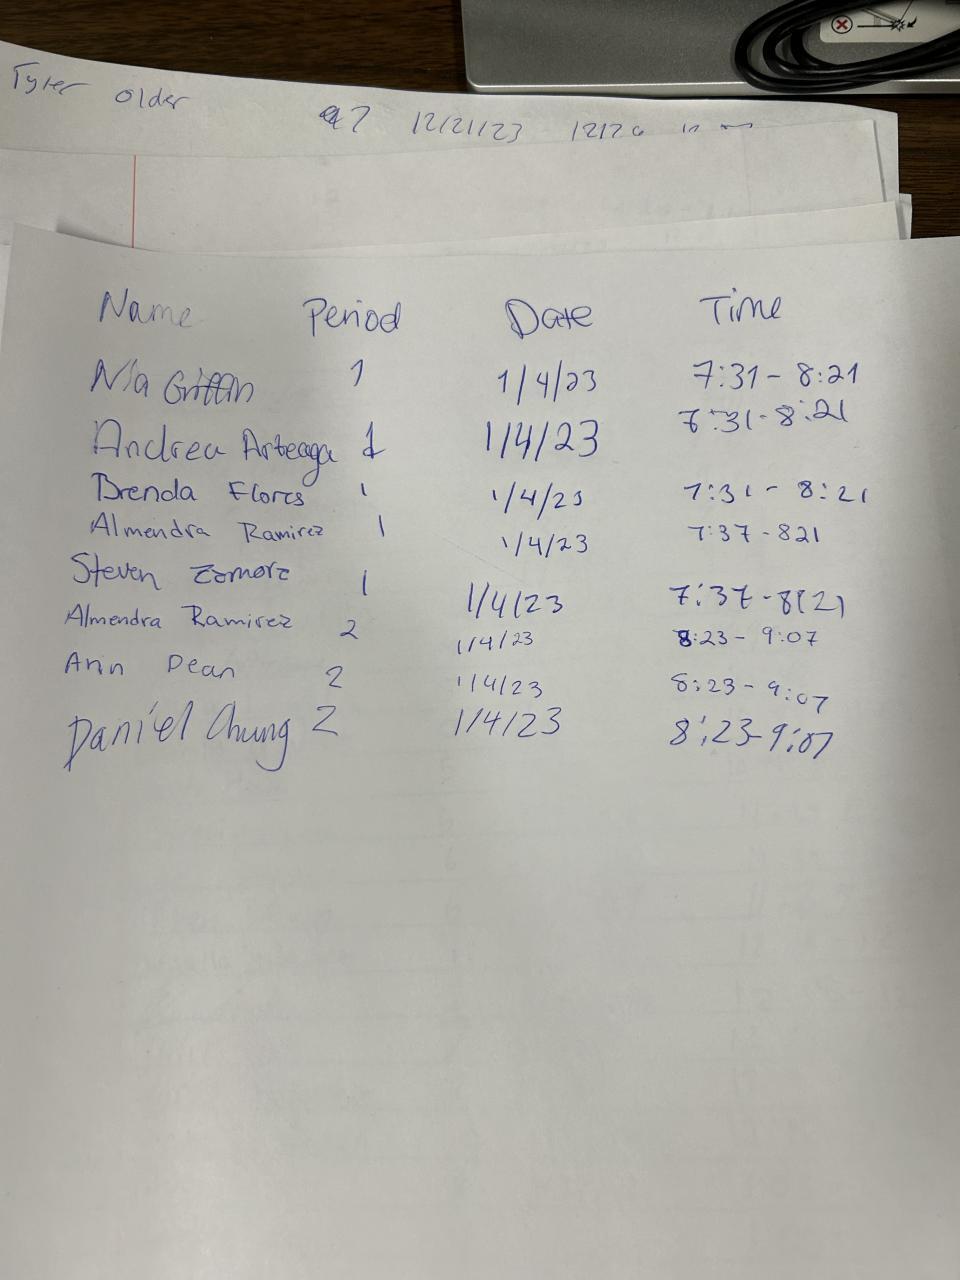 Tyler older 7 12/21/23
Name Period Date Time
Nia Griffin 1 1/4/23 7:31 - 8:21
Andrea Arteaga 1 1/4/23 7:31 - 8:21
Brenda Flores 1 1/4/23 7:31 - 8:21
Almendra Ramirez 1 1/4/23 7:37 - 821
Steven Zamora 1 1/4/23 7:37 - 8(2)
Almendra Ramirez 2 1/4/23 8:23 - 9:07
Ann Dean 2 1/4/23 8:23 - 9:07
Daniel Chung 2 1/4/23 8:23-9:07